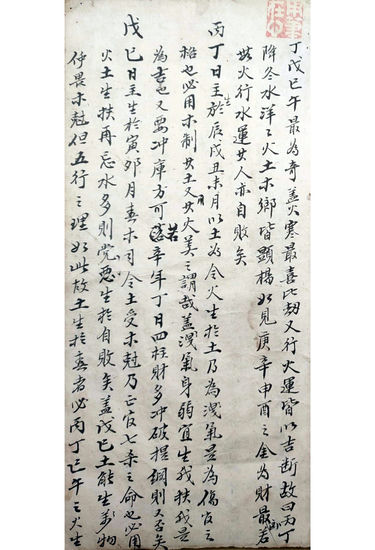 丁戊巳午最為奇蓋火寒最喜比劫又行火運皆以吉断故曰丙丁
降冬水洋々火土木鄉皆顯揚如見庚辛申酉之金為財最若
此火行水運女人亦自敗矣
丙丁日主生於辰戌丑未月以土為令火生於土乃為洩氣並為傷官之
格也必用木制女土又女火美之謂哉蓋洩氣身弱宜生我扶我是
為吉也又要冲庫方可若辛年丁日四柱財多冲破提綱則又否矣
戊巳日主生於寅卯月春木司令土受木尅乃正官七杀之命也必用
火土生扶再忌水多則党惡生於自敗矣蓋戊巳土能生萬物
仲畏木尅但五行之理如此故土生於春者必丙丁巳午之火生